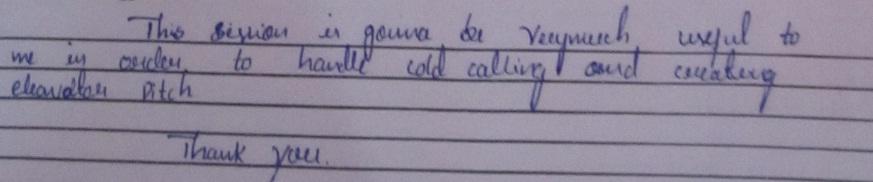 This session is gonna be verymuch useful to
me in order to handle cold calling and creating
elevator pitch
Thank you.